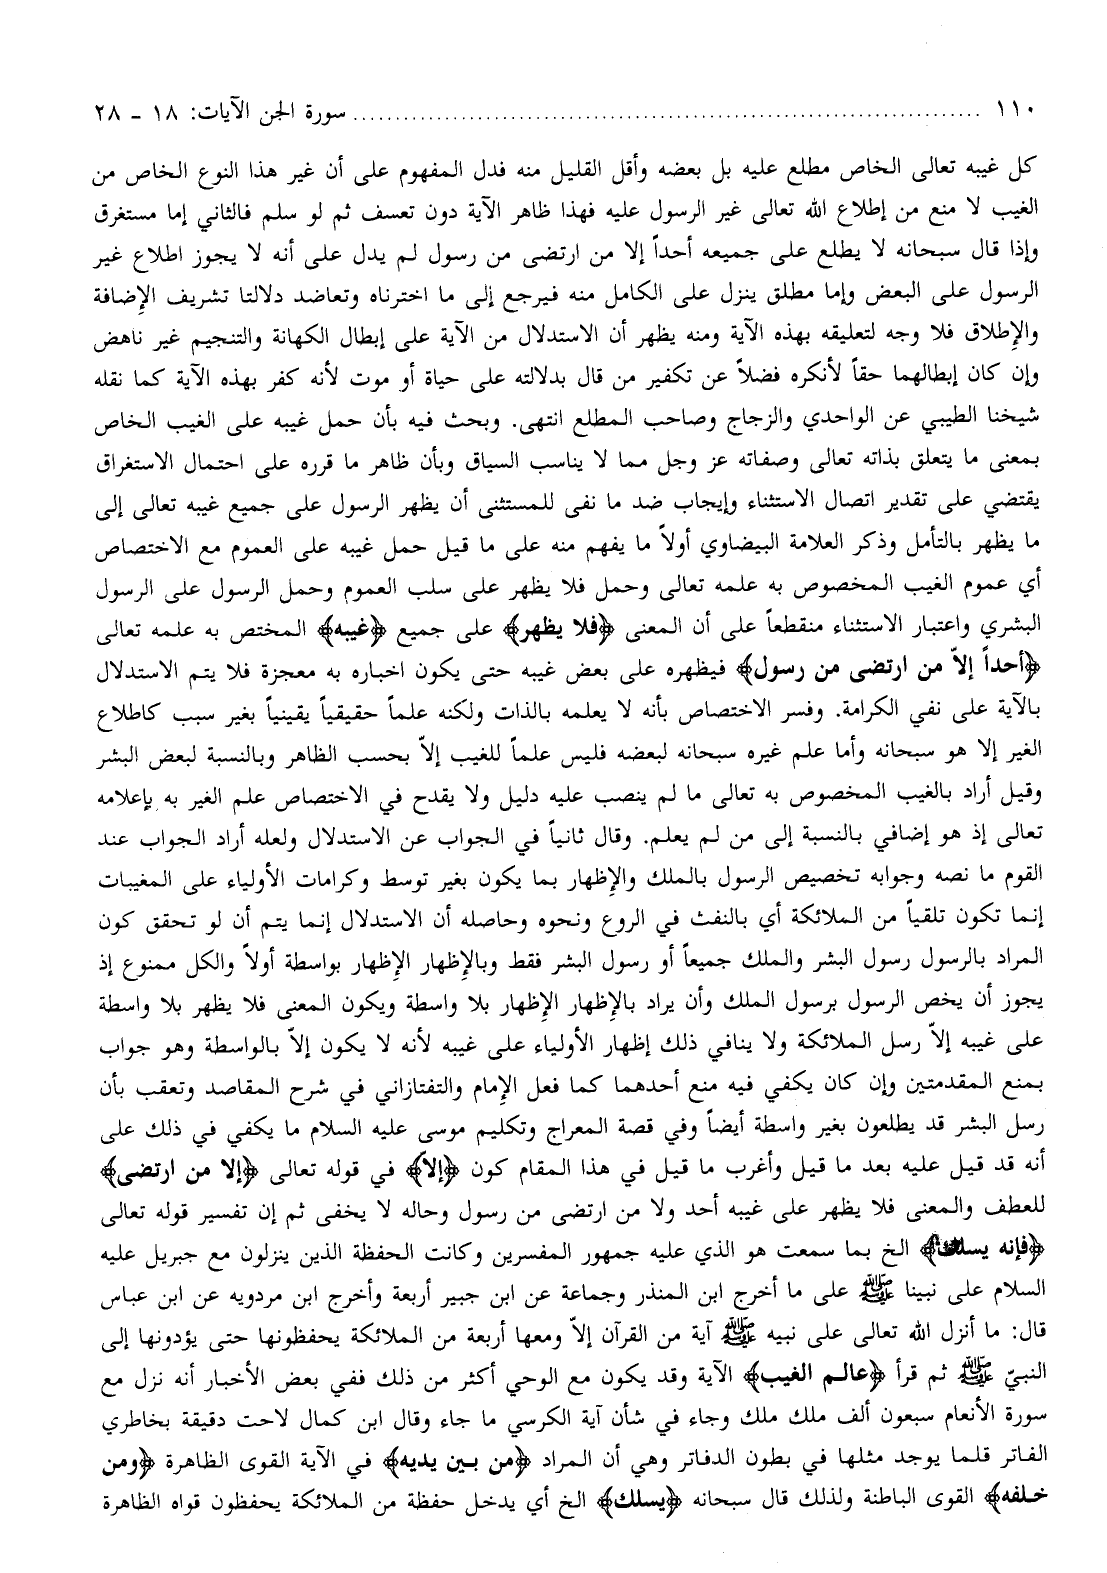 ١١٠ ............ سورة الجن الآيات: ١٨ - ٢٨
كل غيبه تعالى الخاص مطلع عليه بل بعضه وأقل القليل منه فدل المفهوم على أن غير هذا النوع الخاص من
الغيب لا منع من إطلاع الله تعالى غير الرسول عليه فهذا ظاهر الآية دون تعسف ثم لو سلم فالثاني إما مستغرق
وإذا قال سبحانه لا يطلع على جميعه أحداً إلا من ارتضى من رسول لم يدل على أنه لا يجوز اطلاع غير
الرسول على البعض وإما مطلق ينزل على الكامل منه فيرجع إلى ما اخترناه وتعاضد دلالتا تشريف الإضافة
والإطلاق فلا وجه لتعليقه بهذه الآية ومنه يظهر أن الاستدلال من الآية على إبطال الكهانة والتنجيم غير ناهض
وإن كان إبطالهما حقاً لأنكره فضلاً عن تكفير من قال بدلالته على حياة أو موت لأنه كفر بهذه الآية كما نقله
شيخنا الطيبي عن الواحدي والزجاج وصاحب المطلع انتهى. وبحث فيه بأن حمل غيبه على الغيب الخاص
بمعنى ما يتعلق بذاته تعالى وصفاته عز وجل مما لا يناسب السياق وبأن ظاهر ما قرره على احتمال الاستغراق
يقتضي على تقدير اتصال الاستثناء وإيجاب ضد ما نفى للمستثنى أن يظهر الرسول على جميع غيبه تعالى إلى
ما يظهر بالتأمل وذكر العلامة البيضاوي أولاً ما يفهم منه على ما قيل حمل غيبه على العموم مع الاختصاص
أي عموم الغيب المخصوص به علمه تعالى وحمل فلا يظهر على سلب العموم وحمل الرسول على الرسول
البشري واعتبار الاستثناء منقطعاً على أن المعنى ﴿فلا يظهر﴾ على جميع ﴿غيبه﴾ المختص به علمه تعالى
﴿أحداً إلاّ من ارتضى من رسول﴾ فيظهره على بعض غيبه حتى يكون اخباره به معجزة فلا يتم الاستدلال
بالآية على نفي الكرامة. وفسر الاختصاص بأنه لا يعلمه بالذات ولكنه علماً حقيقياً يقينياً بغير سبب كاطلاع
الغير إلا هو سبحانه وأما علم غيره سبحانه لبعضه فليس علماً للغيب إلاّ بحسب الظاهر وبالنسبة لبعض البشر
وقيل أراد بالغيب المخصوص به تعالى ما لم ينصب عليه دليل ولا يقدح في الاختصاص علم الغير به بإعلامه
تعالى إذ هو إضافي بالنسبة إلى من لم يعلم. وقال ثانياً في الجواب عن الاستدلال ولعله أراد الجواب عند
القوم ما نصه وجوابه تخصيص الرسول بالملك والإظهار بما يكون بغير توسط وكرامات الأولياء على المغيبات
إنما تكون تلقياً من الملائكة أي بالنفث في الروع ونحوه وحاصله أن الاستدلال إنما يتم أن لو تحقق كون
المراد بالرسول رسول البشر والملك جميعاً أو رسول البشر فقط وبالإظهار الإظهار بواسطة أولاً والكل ممنوع إذ
يجوز أن يخص الرسول برسول الملك وأن يراد بالإظهار الإظهار بلا واسطة ويكون المعنى فلا يظهر بلا واسطة
على غيبه إلاّ رسل الملائكة ولا ينافي ذلك إظهار الأولياء على غيبه لأنه لا يكون إلاّ بالواسطة وهو جواب
بمنع المقدمتين وإن كان يكفي فيه منع أحدهما كما فعل الإمام والتفتازاني في شرح المقاصد وتعقب بأن
رسل البشر قد يطلعون بغير واسطة أيضاً وفي قصة المعراج وتكليم موسى عليه السلام ما يكفي في ذلك على
أنه قد قيل عليه بعد ما قيل وأغرب ما قيل في هذا المقام كون ﴿إلا﴾ في قوله تعالى ﴿إلا من ارتضى﴾
للعطف والمعنى فلا يظهر على غيبه أحد ولا من ارتضى من رسول وحاله لا يخفى ثم إن تفسير قوله تعالى
﴿فإنه يسلك﴾ الخ بما سمعت هو الذي عليه جمهور المفسرين وكانت الحفظة الذين ينزلون مع جبريل عليه
السلام على نبينا ﷺ على ما أخرج ابن المنذر وجماعة عن ابن جبير أربعة وأخرج ابن مردويه عن ابن عباس
قال: ما أنزل الله تعالى على نبيه ﷺ آية من القرآن إلاّ ومعها أربعة من الملائكة يحفظونها حتى يؤدونها إلى
النبيّ ﷺ ثم قرأ ﴿عالم الغيب﴾ الآية وقد يكون مع الوحي أكثر من ذلك ففي بعض الأخبار أنه نزل مع
سورة الأنعام سبعون ألف ملك ملك وجاء في شأن آية الكرسي ما جاء وقال ابن كمال لاحت دقيقة بخاطري
الفاتر قلما يوجد مثلها في بطون الدفاتر وهي أن المراد ﴿من بين يديه﴾ في الآية القوى الظاهرة ﴿ومن
خلفه﴾ القوى الباطنة ولذلك قال سبحانه ﴿يسلك﴾ الخ أي يدخل حفظة من الملائكة يحفظون قواه الظاهرة